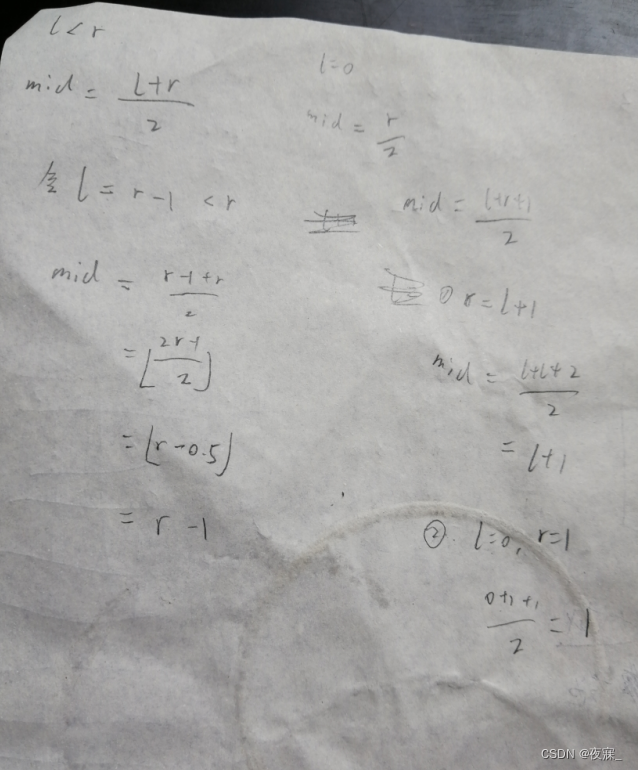 l < r
mid = (l+r)/2
令 l = r-1 < r
mid = (r-1+r)/2
= ⌊(2r-1)/2⌋
= ⌊r-0.5⌋
= r-1
l=0
mid = r/2
mid = (l+r+1)/2
① r=l+1
mid = (l+l+2)/2
= l+1
② l=0, r=1
(0+1+1)/2 = 1
CSDN @夜寐_